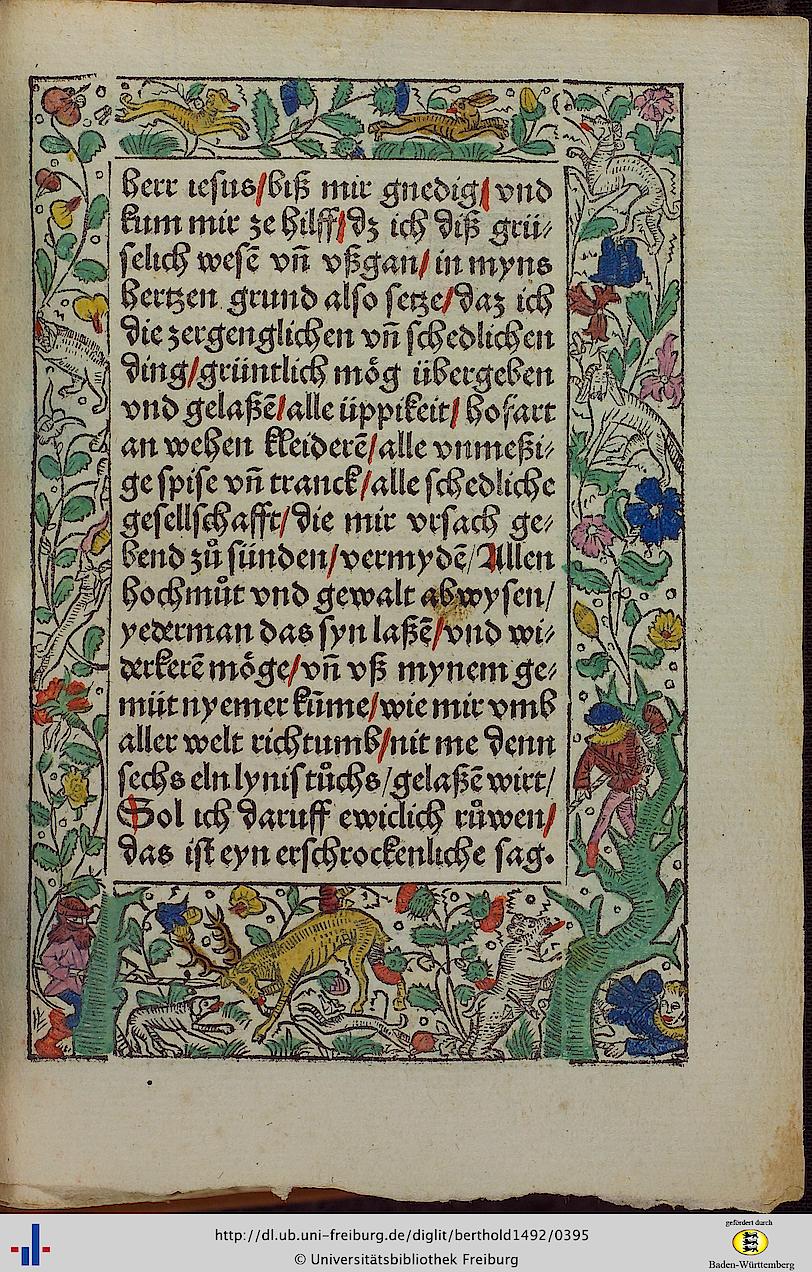 herr iesus/biß mir gnedig/vnd
kum mir ze hilff/dz ich diß grü⸗
selich wesē vñ vßgan/in myns
hertzen grund also setze/daz ich
die zergenglichen vñ schedlichen
ding/grüntlich mög übergeben
vnd gelaßē/alle üppikeit/hofart
an wehen kleiderē/alle vnmeßi⸗
ge spise vñ tranck/alle schedliche
gesellschafft/die mir vrsach ge⸗
bend zů sünden/vermydē/Allen
hochmůt vnd gewalt abwysen/
yederman das syn laßē/vnd wi⸗
derkerē möge/vñ vß mynem ge⸗
müt nyemer kūme/wie mir vmb
aller welt richtumb/nit me denn
sechs eln lynis tůchs/gelaßē wirt/
Sol ich daruff ewiclich růwen/
das ist eyn erschrockenliche sag.
http://dl.ub.uni-freiburg.de/diglit/berthold1492/0395
© Universitätsbibliothek Freiburg
gefördert durch
Baden-Württemberg